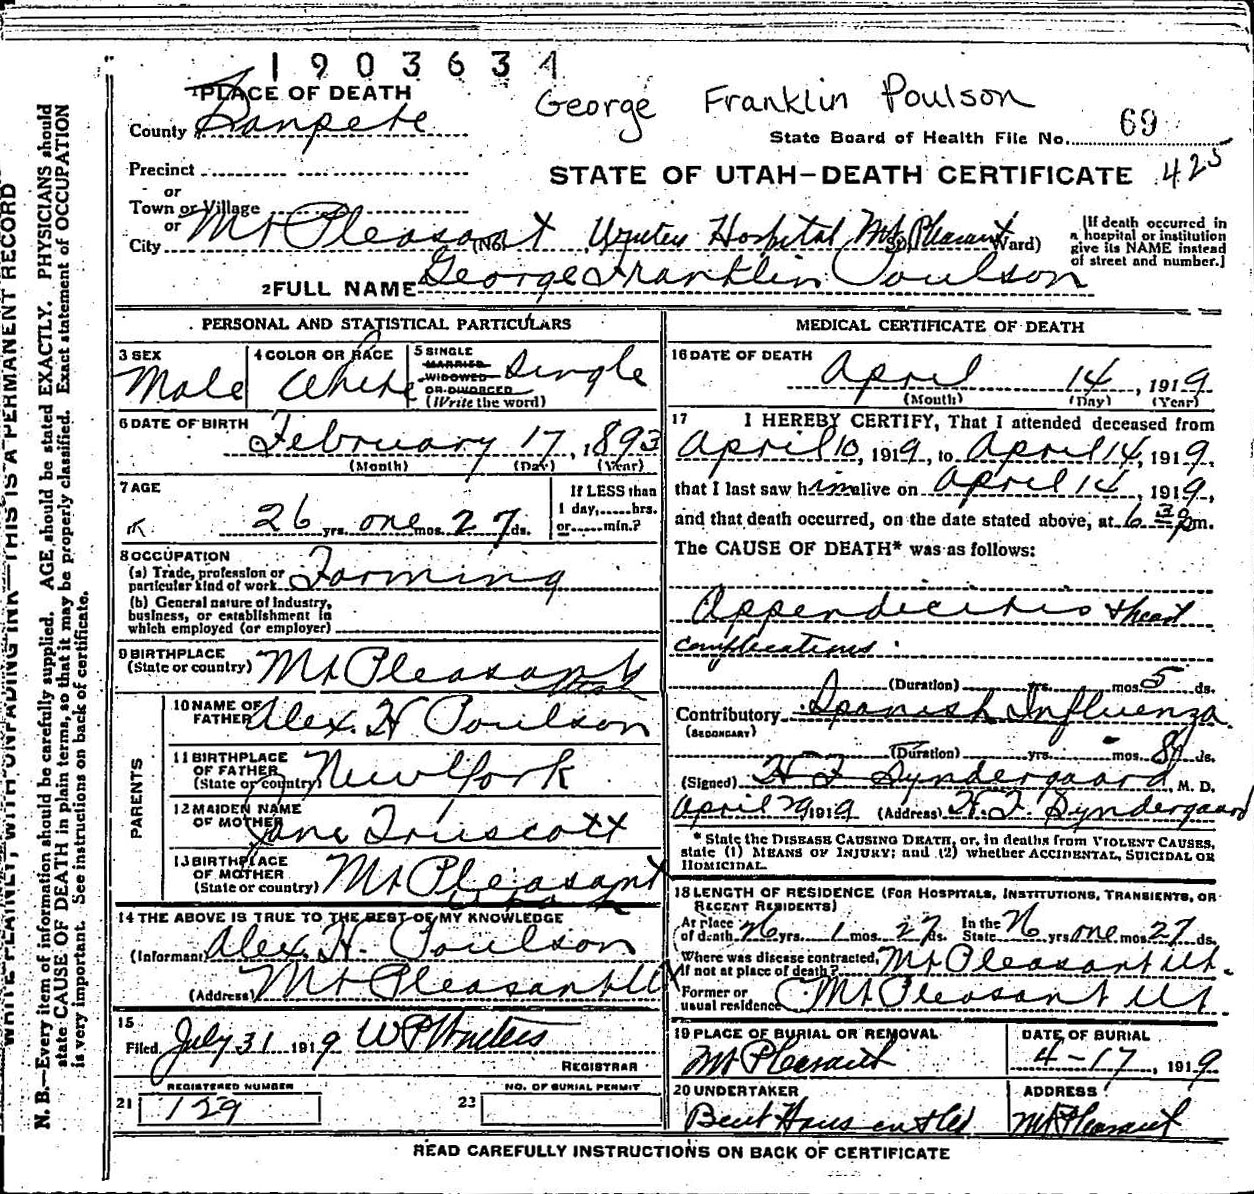 1903634
PLACE OF DEATH
George Franklin Poulson
County Sanpete
State Board of Health File No. 69
425
Precinct
or
STATE OF UTAH—DEATH CERTIFICATE
Town or Village
or
City Mt Pleasant (No. Hospital Mt Pleasant Ward)
[If death occurred in a hospital or institution give its NAME instead of street and number.]
2 FULL NAME George Franklin Poulson
PERSONAL AND STATISTICAL PARTICULARS
3 SEX Male
4 COLOR OR RACE White
5 SINGLE MARRIED WIDOWED OR DIVORCED (Write the word) Single
6 DATE OF BIRTH February 17, 1893
(Month) (Day) (Year)
7 AGE
26 yrs. one mos. 27 ds.
If LESS than 1 day,......hrs. or......min.?
8 OCCUPATION
(a) Trade, profession or particular kind of work Farming
(b) General nature of industry, business, or establishment in which employed (or employer)
9 BIRTHPLACE (State or country) Mt Pleasant Utah
PARENTS
10 NAME OF FATHER Alex. H Poulson
11 BIRTHPLACE OF FATHER (State or country) New York
12 MAIDEN NAME OF MOTHER Jane Truscott
13 BIRTHPLACE OF MOTHER (State or country) Mt Pleasant Utah
14 THE ABOVE IS TRUE TO THE BEST OF MY KNOWLEDGE
(Informant Alex. H. Poulson
(Address) Mt Pleasant Ut
15
Filed July 31 1919
REGISTRAR
REGISTERED NUMBER
21 129
NO. OF BURIAL PERMIT
23
MEDICAL CERTIFICATE OF DEATH
16 DATE OF DEATH
April 14, 1919
(Month) (Day) (Year)
17 I HEREBY CERTIFY, That I attended deceased from
April 10, 1919, to April 14, 1919,
that I last saw him alive on April 14, 1919,
and that death occurred, on the date stated above, at 6 30 p m.
The CAUSE OF DEATH* was as follows:
Appendicitis & heart
complications.
(Duration) yrs. mos. 5 ds.
Contributory Spanish Influenza
(SECONDARY)
(Duration) yrs. mos. ds.
(Signed) H F Syndergaard, M. D.
April 29 1919 (Address) H. F. Syndergaard
* State the DISEASE CAUSING DEATH, or, in deaths from VIOLENT CAUSES, state (1) MEANS OF INJURY; and (2) whether ACCIDENTAL, SUICIDAL OR HOMICIDAL.
18 LENGTH OF RESIDENCE (FOR HOSPITALS, INSTITUTIONS, TRANSIENTS, OR RECENT RESIDENTS)
At place of death 26 yrs. 1 mos. 27 ds. In the State 26 yrs. one mos. 27 ds.
Where was disease contracted, if not at place of death? Mt Pleasant Ut.
Former or usual residence Mt Pleasant Ut
19 PLACE OF BURIAL OR REMOVAL
Mt Pleasant
DATE OF BURIAL
4-17, 1919
20 UNDERTAKER
ADDRESS
Mt Pleasant
READ CAREFULLY INSTRUCTIONS ON BACK OF CERTIFICATE
WRITE PLAINLY, WITH UNFADING INK—THIS IS A PERMANENT RECORD
N. B.—Every item of information should be carefully supplied. AGE should be stated EXACTLY. PHYSICIANS should
state CAUSE OF DEATH in plain terms, so that it may be properly classified. Exact statement of OCCUPATION
is very important. See instructions on back of certificate.